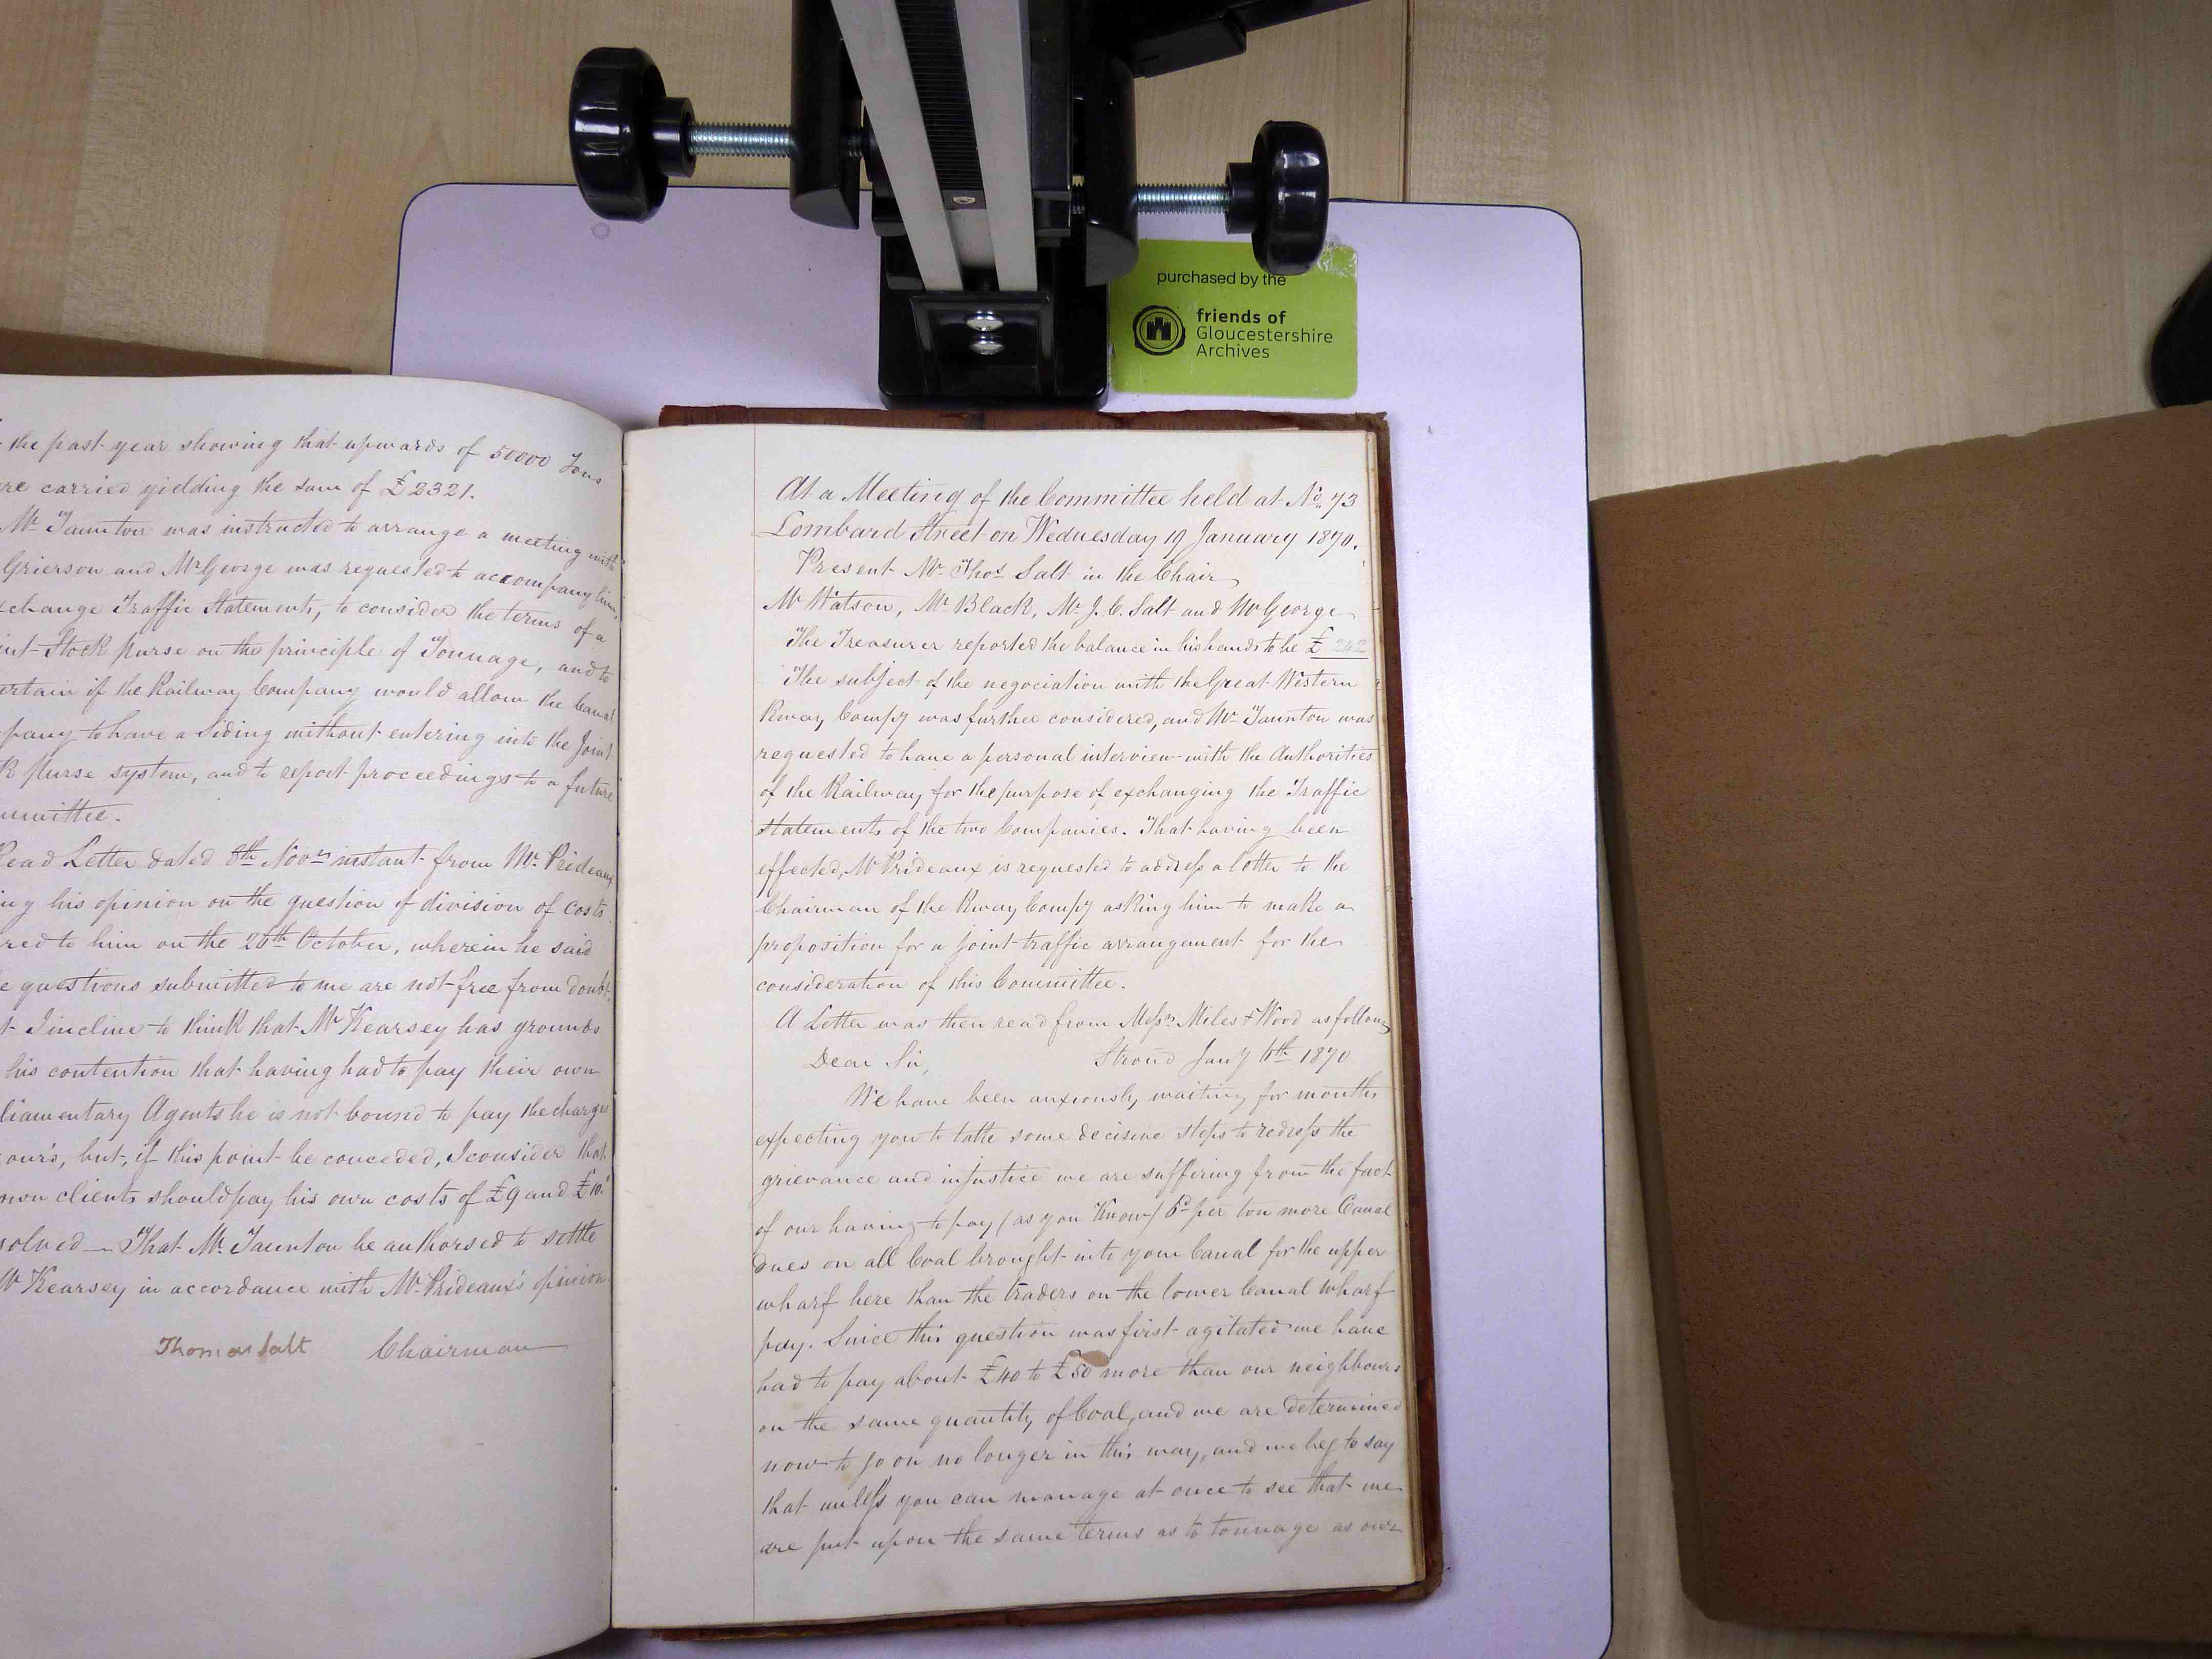 purchased by the
friends of
Gloucestershire
Archives
the past year showing that upwards of 50000 Tons
re carried yielding the sum of £2321.
Mr Taunton was instructed to arrange a meeting with
Grierson and Mr George was requested to accompany him,
change Traffic Statements, to consider the terms of a
int Stock purse on the principle of Tonnage, and to
ertain if the Railway Company would allow the Canal
pany to have a Siding without entering into the Joint
k purse system, and to report proceedings to a future
mmittee.
Read Letter dated 8th Novr instant from Mr. Prideaux
ing his opinion on the question of division of costs
red to him on the 26th October, wherein he said
e questions submitted to me are not free from doubt,
t I incline to think that Mr Kearsey has grounds
his contention that having had to pay their own
liamentary Agents he is not bound to pay the charges
our's, but, if this point be conceded, I consider that
own clients should pay his own costs of £9 and £10.
solved — That Mr. Taunton be authorsed to settle
Mr Kearsey in accordance with Mr. Prideaux's opinion
Thomas Salt Chairman
At a Meeting of the Committee held at No. 73
Lombard Street on Wednesday 19 January 1870.
Present Mr. Thos. Salt in the Chair
Mr Watson, Mr. Black, Mr. J. C. Salt and Mr George
The Treasurer reported the balance in his hands to be £
The subject of the negociation with the Great Western
Rway Compy was further considered, and Mr. Taunton was
requested to have a personal interview with the Authorities
of the Railway for the purpose of exchanging the Traffic
Statements of the two Companies. That having been
effected, Mr Prideaux is requested to address a letter to the
Chairman of the Rway Compy asking him to make a
proposition for a joint traffic arrangement for the
consideration of this Committee.
A Letter was then read from Messrs. Miles & Wood as follows
Dear Sir, Stroud Jany 1870
We have been anxiously waiting for months
expecting you to take some decisive steps to redress the
grievance and injustice we are suffering from the fact
of our having to pay (as you know) 6d per ton more Canal
dues on all Coal brought into your Canal for the upper
wharf here than the traders on the lower Canal wharf
pay. Since this question was first agitated we have
had to pay about £40 to £50 more than our neighbours
on the same quantity of Coal, and we are determined
now to go on no longer in this way, and we beg to say
that unless you can manage at once to see that we
are put upon the same terms as to tonnage as our